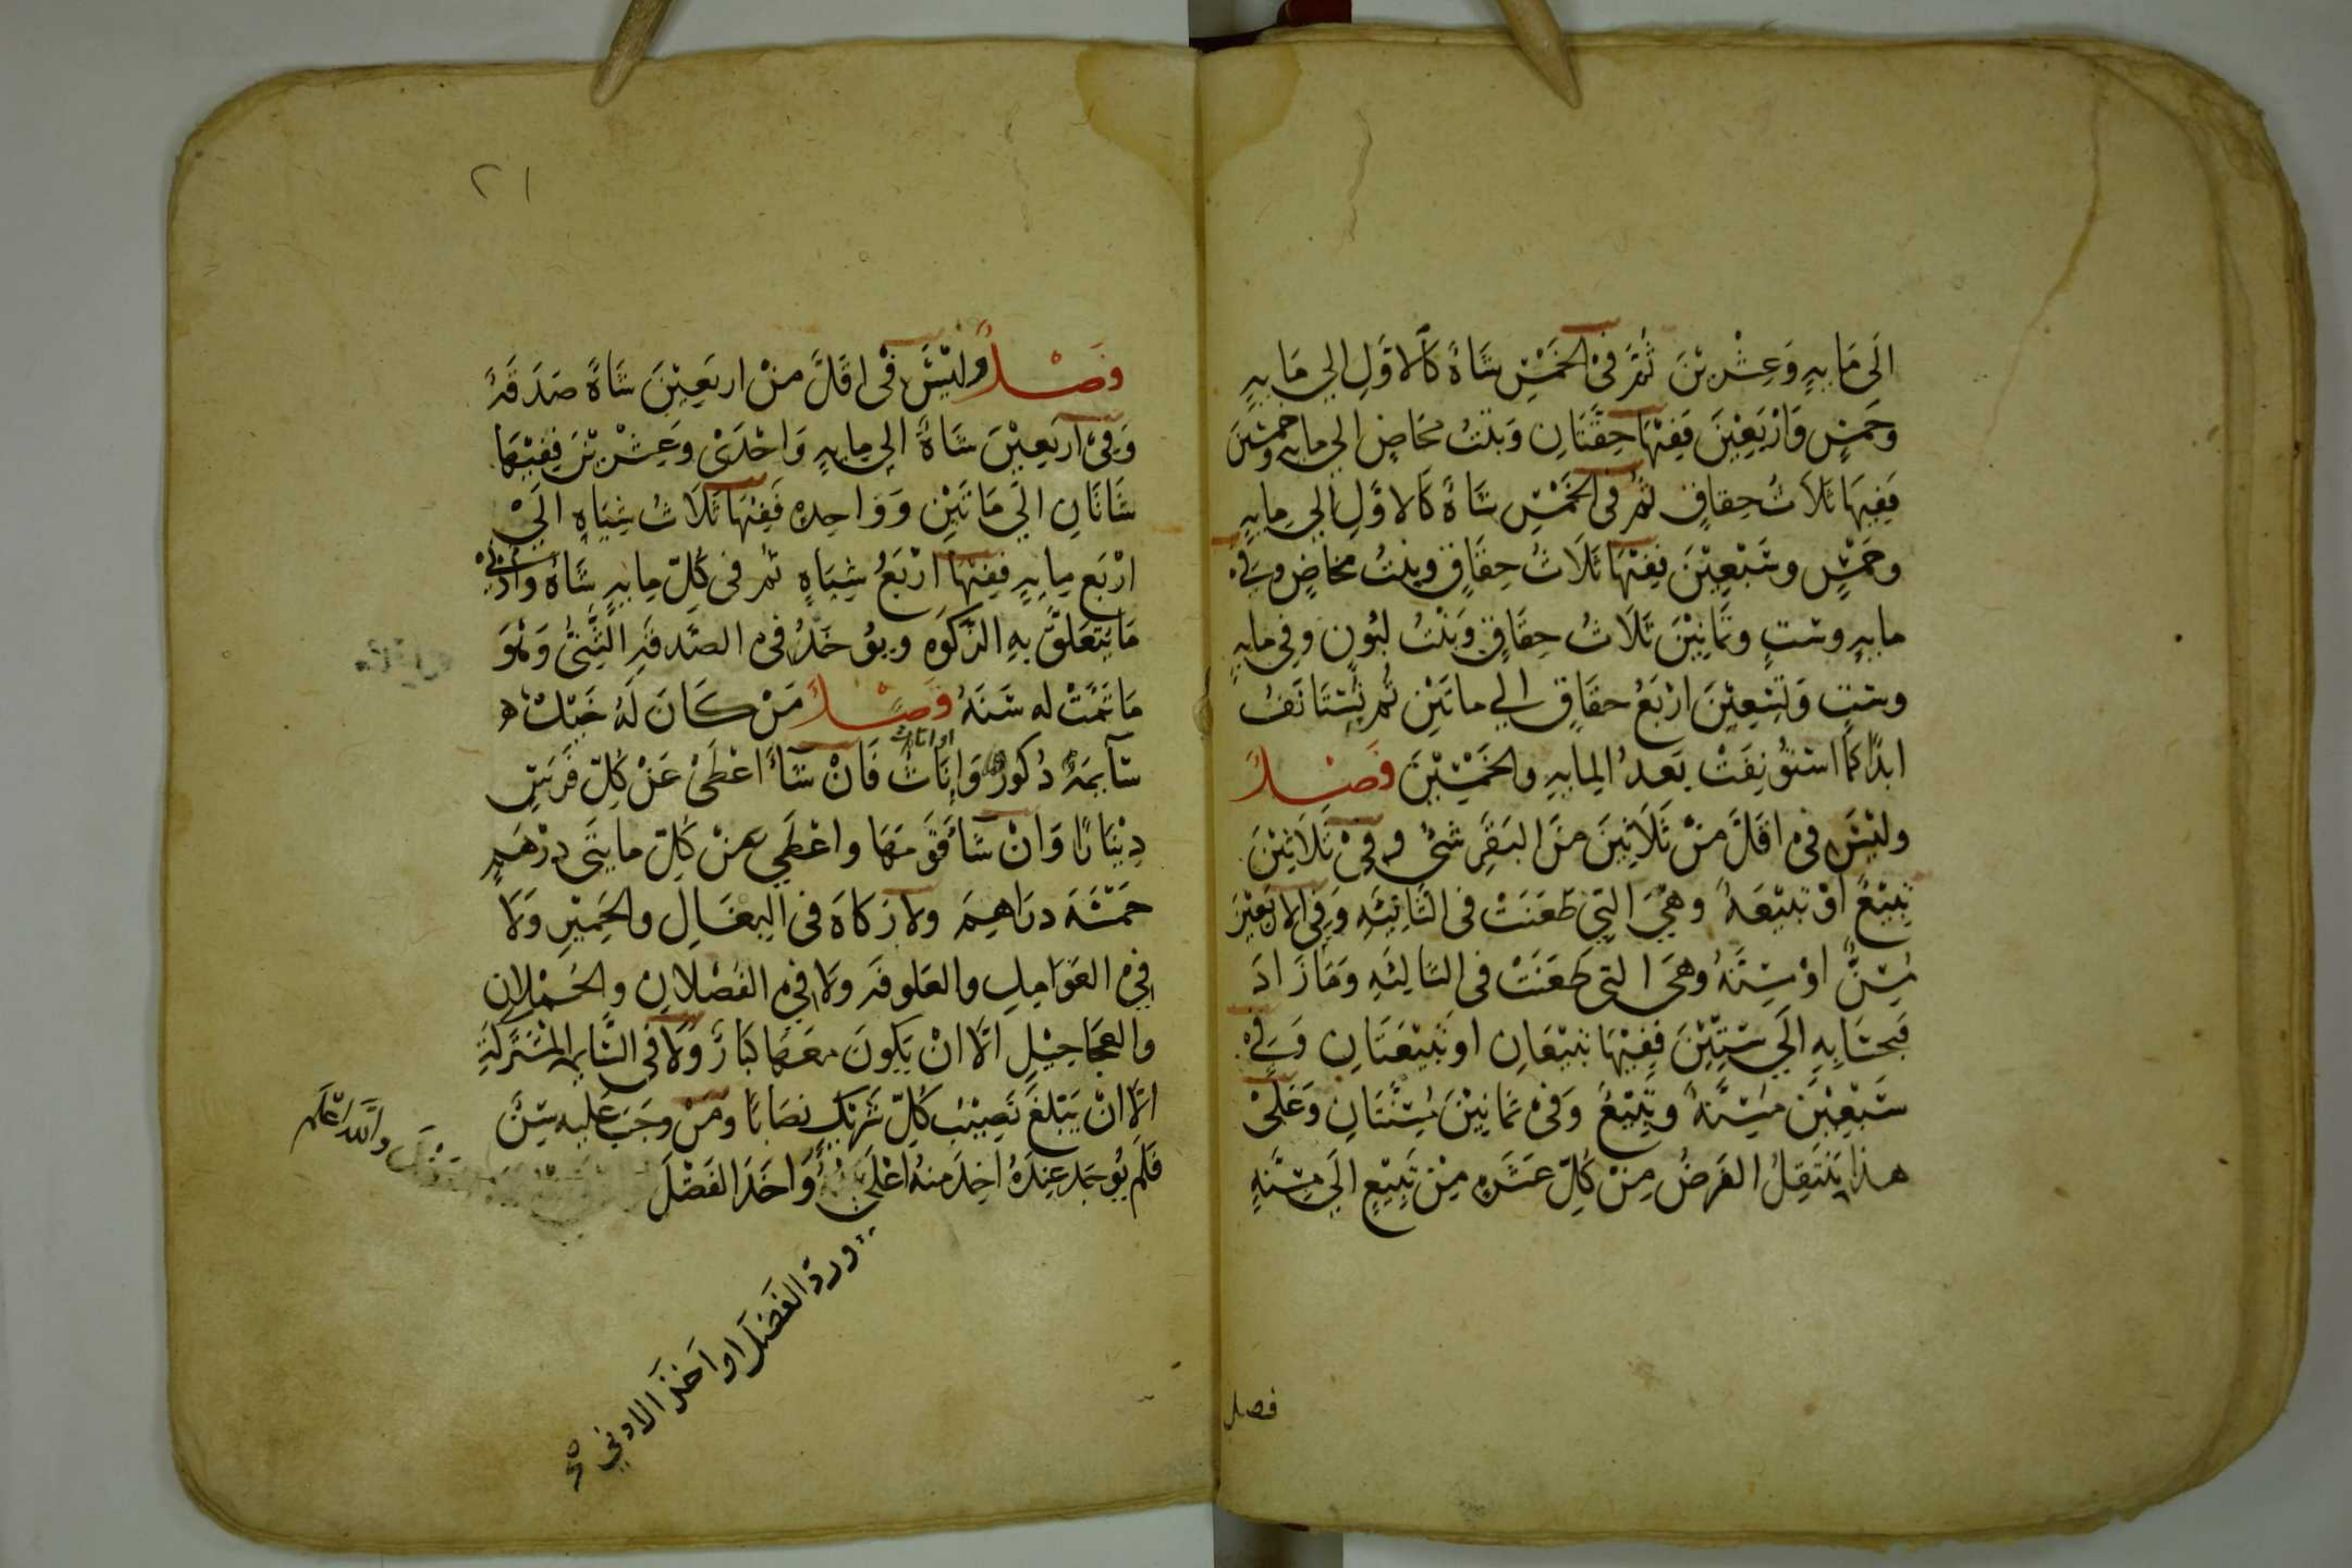 الَى مَايهٍ وَعِشْرِيْنَ ثُمَّ فىْ الخَمْسِ شَاةً كَالاَوَّلِ الي مَايهٍ
وَخَمسٍ وَارْبَعِيْنَ فَفِيْهَا حِقَّتَانِ وَبنْتُ مَخَاضٍ الي مايه وخمسين
فَفِيهَا ثَلاَثُ حِقاقٍ ثُمّ فى الخَمْسِ شَاةً كَالاوَّلِ الي مِايهٍ
وخَمْسٍ وسَبْعِيْنَ فَفِيْهَا ثَلَاثُ حِقَاقٍ وبنتُ مخاضٍ وَفىْ
مايهٍ وستٍ وثَمانِيْنَ ثَلَاثُ حِقَاقٍ وَبنْتُ لبُونٍ وفي مايهٍ
وستٍ وَتِسْعِيْنَ ارْبَعُ حقَاقٍ الي ماتَيْنِ ثُم تُسْتَانَفُ
ابدًا كَمَا اسْتُؤنِفَتْ بَعدُ المِايهِ والخَمْسِيْنَ فَصْلٌ
ولَيْسَ فىْ اقَلَّ منْ ثَلَاثِيْنَ منَ البَقَرِ شئٌ وفيْ ثَلَاثِيْنَ
تَبِيْعٌ اوْ تَبِيْعَةٌ وهيَ التِي طَعَنَتْ فى الثَانِيَةِ وَفي الارْبَعِيْنَ
مُسِنٌّ اوْ مُسِنَّةٌ وهىَ التى طَعَنَتْ فى الثالِثَهِ وَمَا زَادَ
فبحسَابِهِ الَي سِتِّيْنَ فَفِيْهَا تَبِيْعَانِ او تَبِيْعَتَانِ وَفىْ
سَبْعِيْنَ مُسِنَّةٌ وتَبِيْعٌ وَفىْ ثَمانِيْنَ مُسِنَّتَانِ وَعَليْ
هذا يَنْتَقِلُ الفَرضُ مِنْ كلِّ عَشَرهٍ مِنْ تَبِيْعٍ الَي مُسِنَّهٍ
فصل
٢١
فَصْلٌ ولَيْسَ فىْ اقَلَّ منْ اربَعِيْنَ شَاةً صَدَقَةٌ
وَفىْ اربَعِيْنَ شَاةً شاة الي مايهٍ وَاحْدَىْ وعِشْرِيْنَ فَفِيْهَا
شَاتَانِ الَي مَاتَيْنِ وَوَاحِدهٍ فَفِيْهَا ثَلَاثُ شِيَاهٍ الَيْ
ارْبَعِ مِايهٍ فَفِيْهَا ارْبَعُ شِيَاهٍ ثم فى كُلّ مِايهٍ شَاةٌ وادْنيْ
مَايَتَعَلقُ بهِ الزَكَوهِ ويوُخَذُ فى الصَّدقَهِ الثَّنِيُّ وَهْوَ
مَا تَمَّتْ له سَنَةٌ فَصْلٌ مَنْ كَانَ لَهُ خَيْلٌ
سَآيمَةٌ ذُكورٌ وَاِنَاثٌ فَانْ شَاءَ اعْطَىْ عَنْ كُلِّ فَرَسٍ
او اناث
دِيْنَارًا وَانْ شَا قَوَّمَهَا واعْطَي عَنْ كُلّ مايتَى دِرْهَمٍ
خمْسَةَ دراهِمَ ولا زَكَاةَ فى البغَالِ والحَمِيْرِ وَلَا
فى العَوَامِلِ والعَلوفَه ولَا فى الفُصْلَانِ والحُمْلانِ
والعجَاجيْلِ الَّا انْ يكُونَ مَعَهَا كبَارٌ وَلَا فى السَّايمه المشتَركَةِ
الَّا انْ يَبْلغَ نَصِيْبُ كُلّ شَرِيْكٍ نصَابًا ومَنْ وجَبَ عَليه سِنٌّ
فَلَم يُوجَد عِندَهُ اخِذَ منهُ اعْلَي وَاخَذَ الفَضْلَ
والله اعْلَم
وردّ الفَضلَ او اَخذَ الادني صح